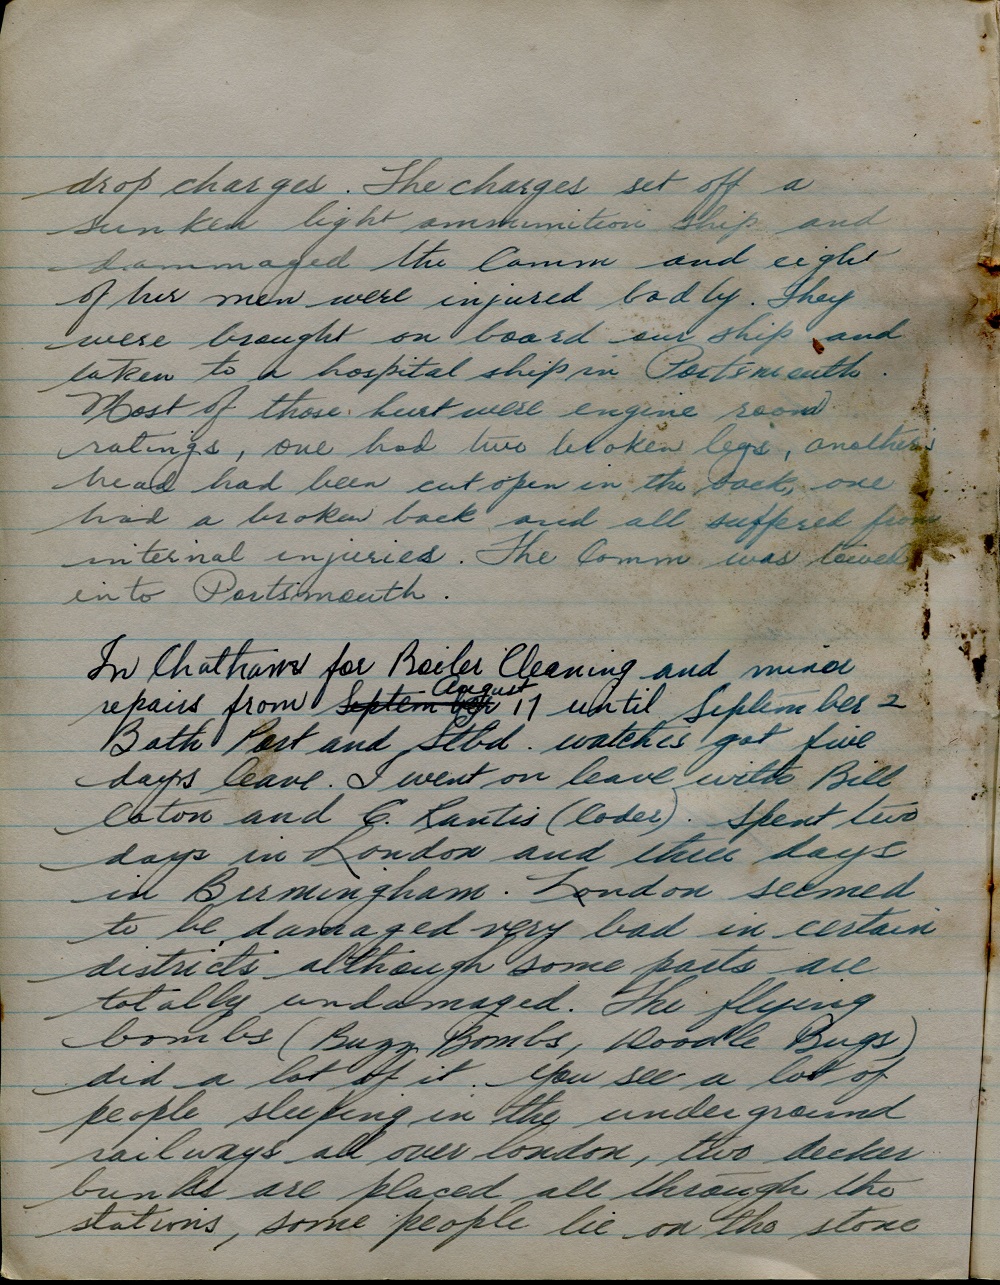 drop charges. The charges set off a
sunken light ammunition ship and
dammaged the Comm and eight
of her men were injured badly. They
were brought on board our ship and
taken to a hospital ship in Portsmouth.
Most of those hurt were engine room
ratings, one had two broken legs, anothers
head had been cut open in the back, one
had a broken back and all suffered from
internal injuries. The Comm was towed
into Portsmouth.
In Chatham for Boiler Cleaning and minor
repairs from September August 17 until September 2
Both Port and Stbd. watches got five
days leave. I went on leave with Bill
Eaton and C. Kantis (Coder). Spent two
days in London and three days
in Birmingham. London seemed
to be damaged very bad in certain
districts although some parts are
totally undamaged. The flying
bombs (Buzz Bombs, Doodle Bugs)
did a lot of it. You see a lot of
people sleeping in the underground
railways all over london, two decker
bunks are placed all through the
stations, some people lie on the stone